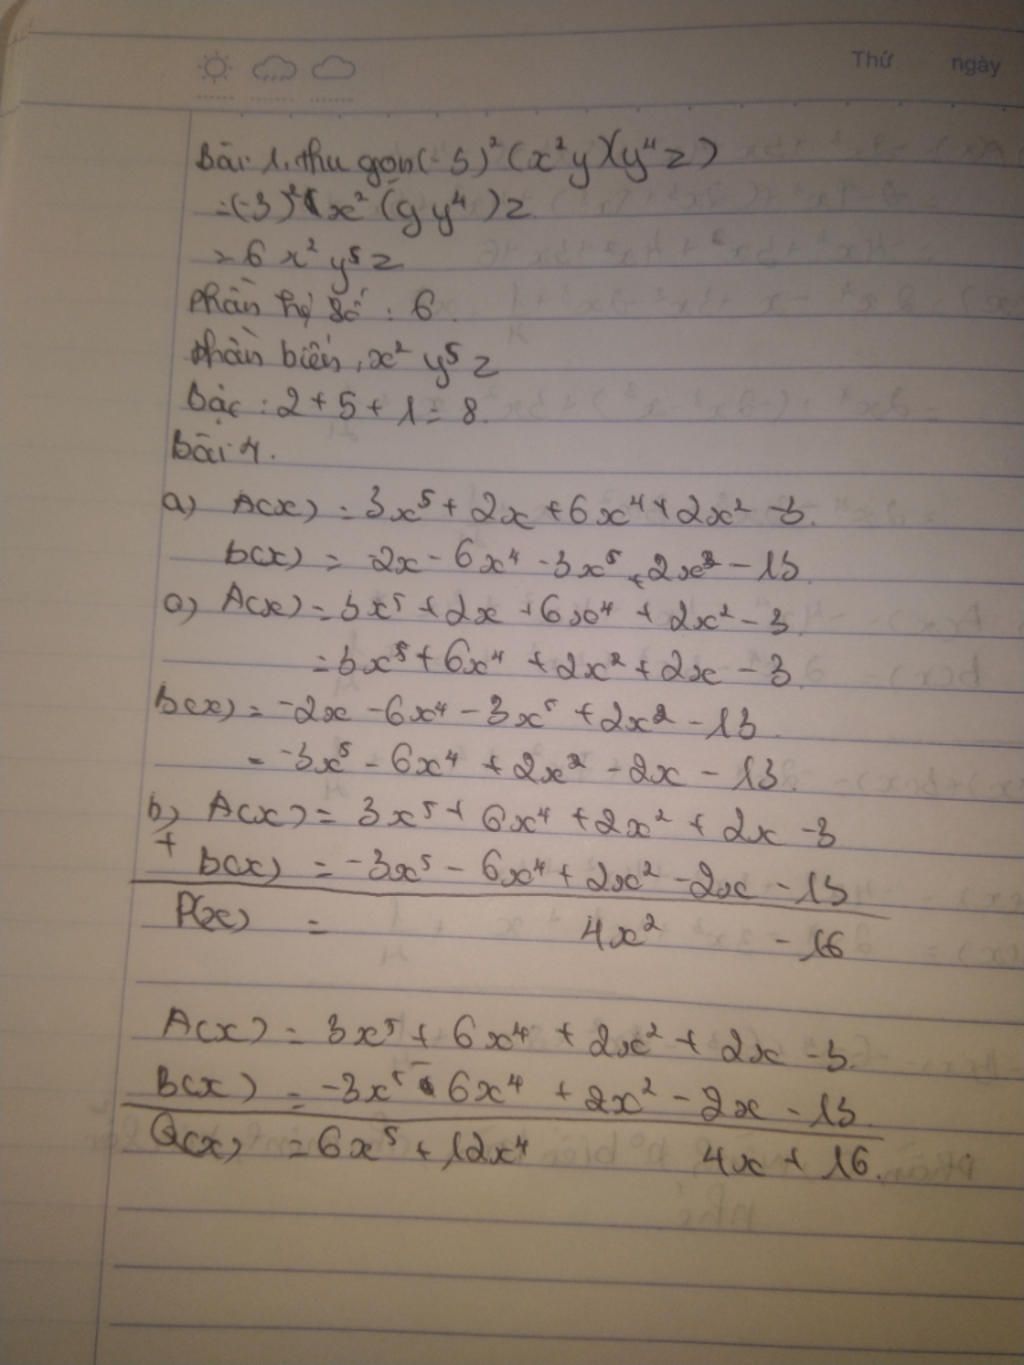 Thứ ngày
Bài 1. thu gọn (-3)² (x²y)(y⁴z)
= (-3)² x² (y y⁴) z
= 6 x² y⁵ z
Phần hệ số : 6
Phần biến : x² y⁵ z
Bậc : 2 + 5 + 1 = 8.
Bài 4.
a) A(x) = 3x⁵ + 2x + 6x⁴ + 2x² - 3.
B(x) = -2x - 6x⁴ - 3x⁵ + 2x² - 13
a) A(x) = 3x⁵ + 2x + 6x⁴ + 2x² - 3
= 3x⁵ + 6x⁴ + 2x² + 2x - 3.
B(x) = -2x - 6x⁴ - 3x⁵ + 2x² - 13
= -3x⁵ - 6x⁴ + 2x² - 2x - 13.
b) A(x) = 3x⁵ + 6x⁴ + 2x² + 2x - 3
+ B(x) = -3x⁵ - 6x⁴ + 2x² - 2x - 13
P(x) = 4x² - 16
A(x) = 3x⁵ + 6x⁴ + 2x² + 2x - 3.
B(x) = -3x⁵ - 6x⁴ + 2x² - 2x - 13
Q(x) = 6x⁵ + 12x⁴ 4x + 16.